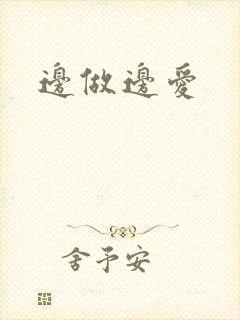 邊做邊愛
舍予安